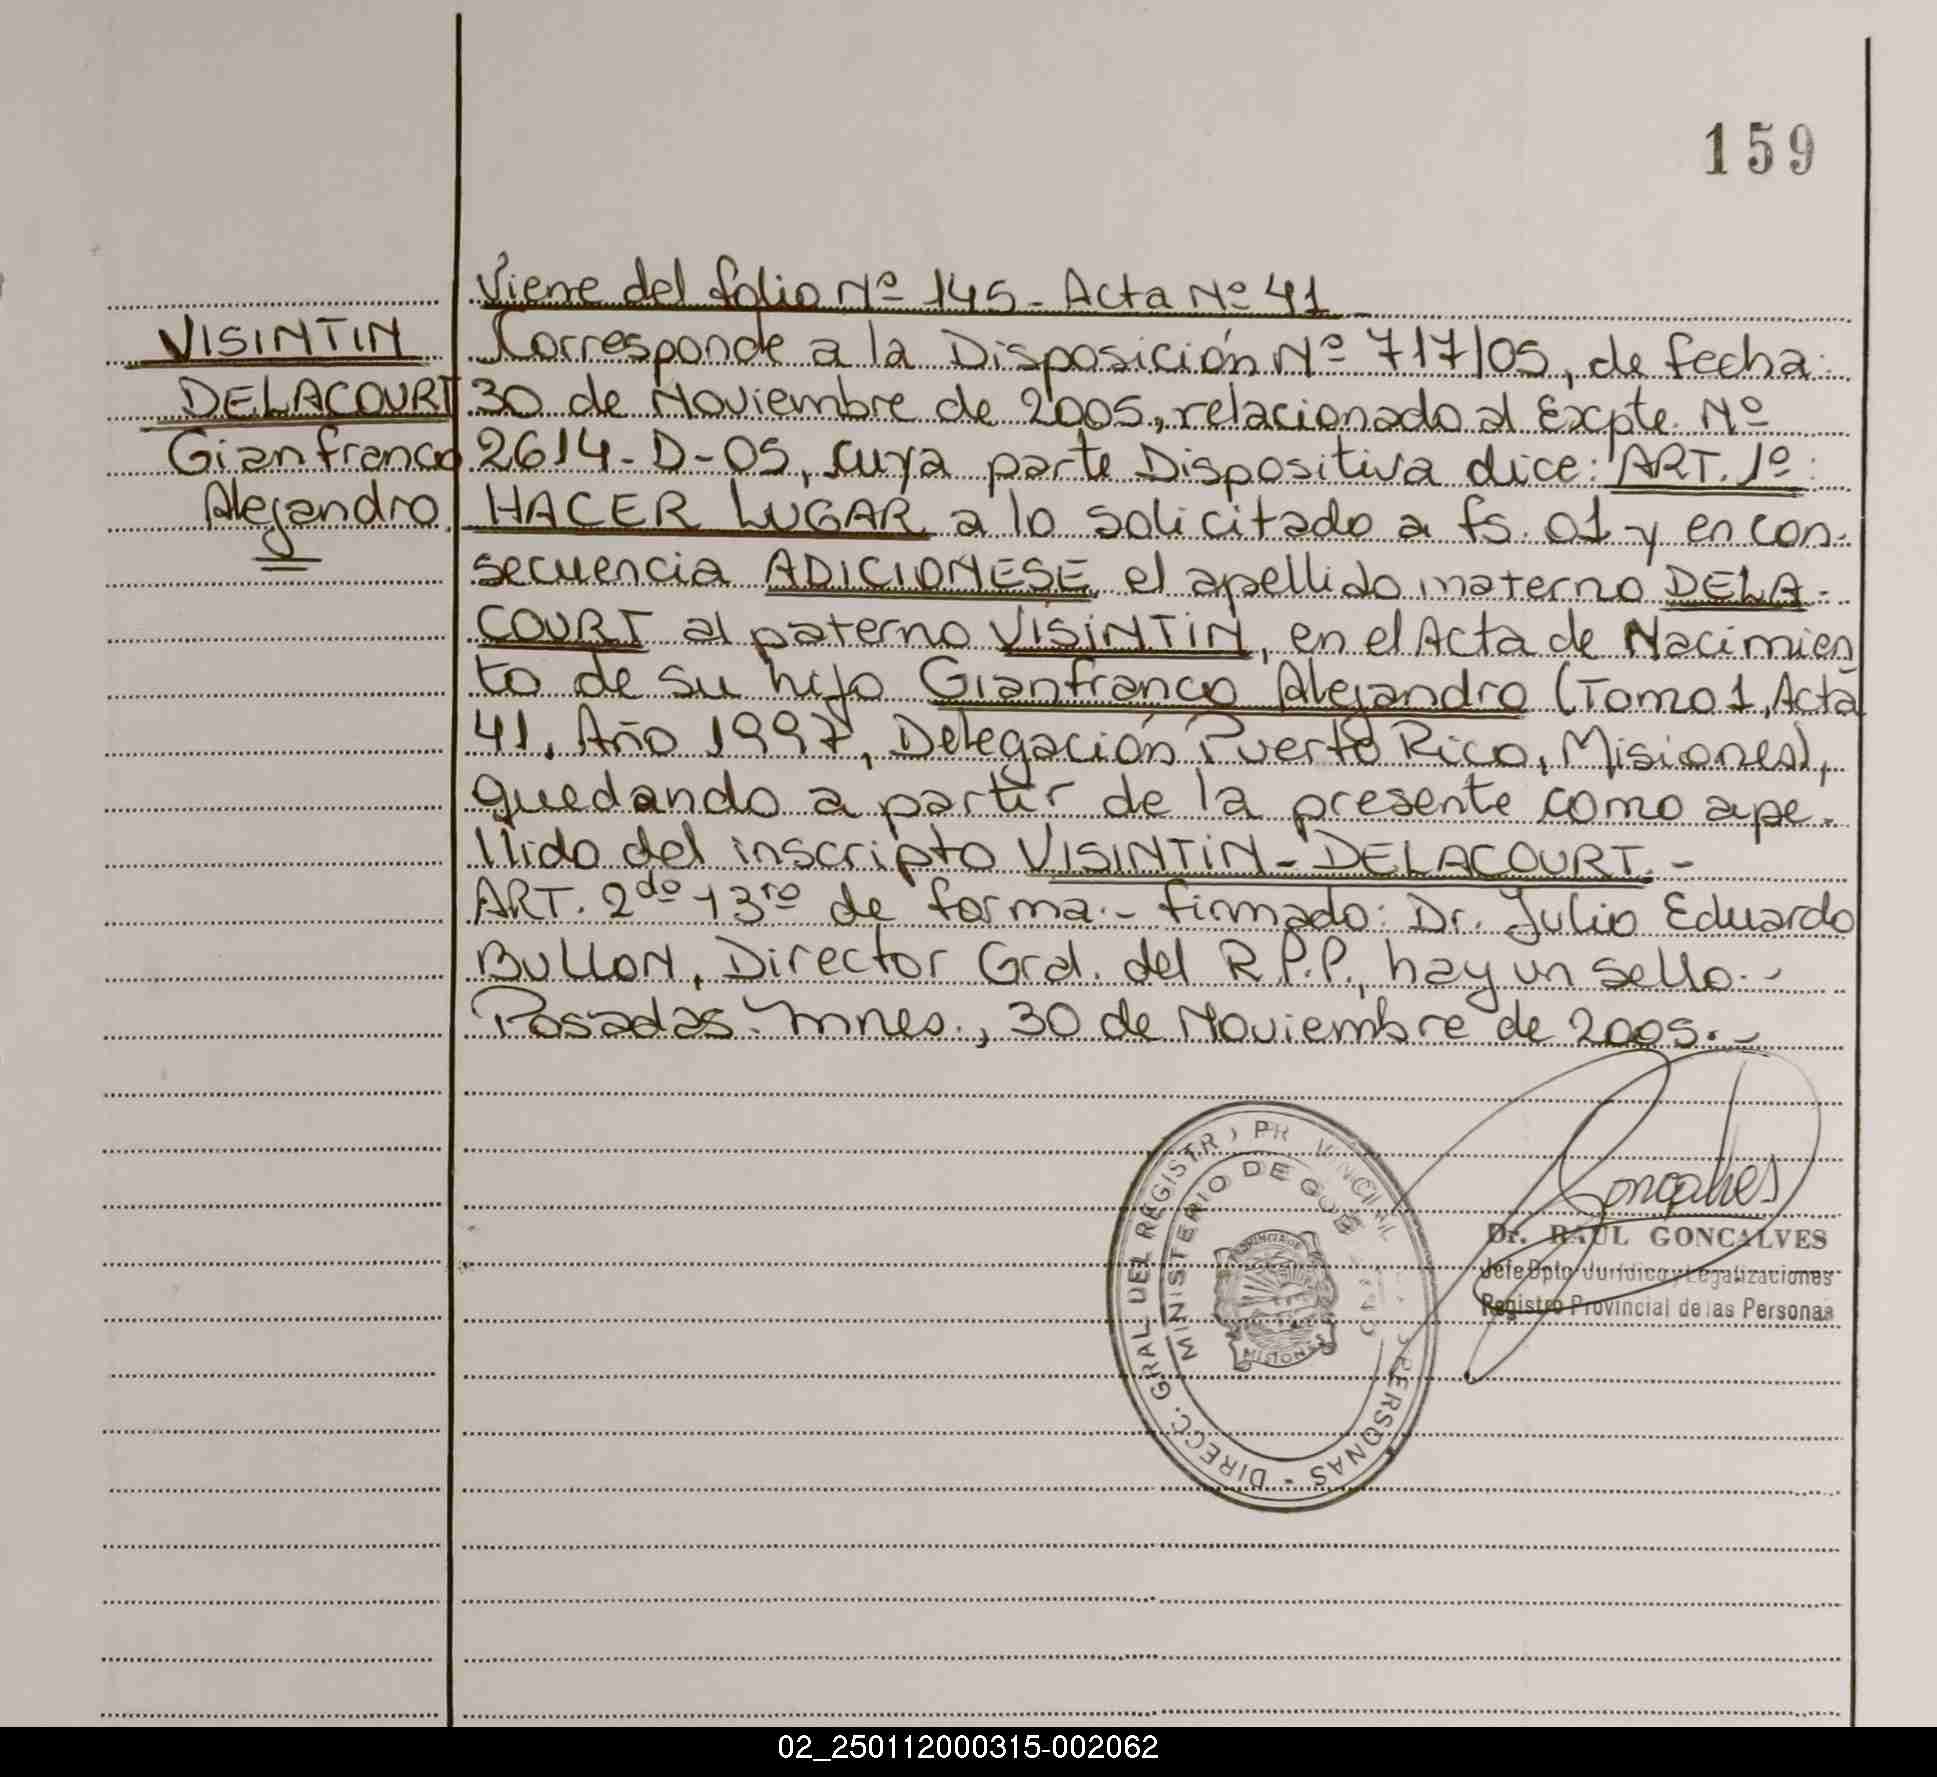 159
Viene del folio Nº 145 - Acta Nº 41
VISINTIN
DELACOURT
Gianfranco
Alejandro.
Corresponde a la Disposición Nº 717/05, de fecha:
30 de Noviembre de 2005, relacionado al Expte. Nº
2614-D-05, cuya parte Dispositiva dice: ART. 1º:
HACER LUGAR a lo solicitado a fs. 01 y en con-
secuencia ADICIONESE el apellido materno DELA-
COURT al paterno VISINTIN, en el Acta de Nacimien
to de su hijo Gianfranco Alejandro (Tomo 1, Acta
41, Año 1997, Delegación Puerto Rico, Misiones),
quedando a partir de la presente como ape-
llido del inscripto VISINTIN-DELACOURT.-
ART. 2do y 3ro de forma.- firmado: Dr. Julio Eduardo
BULLON, Director Gral. del R.P.P., hay un sello.-
Posadas. Mnes., 30 de Noviembre de 2005.-
DIRECC. GRAL DEL REGISTRO PROVINCIAL PERSONAS -
MINISTERIO DE GOB
PROVINCIA DE
MISIONES
Goncalves
Dr. RAUL GONCALVES
Jefe Dpto Jurídico y Legalizaciones
Registro Provincial de las Personas
02_250112000315-002062